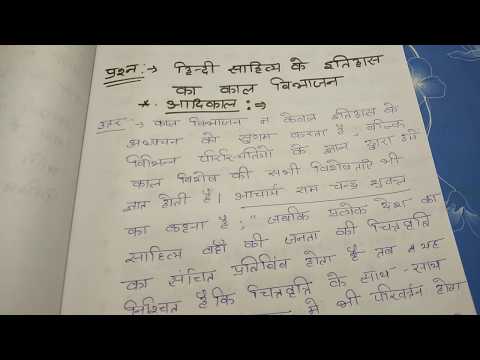 प्रश्न :→ हिन्दी साहित्य के इतिहास
का काल विभाजन
* आदिकाल :⇒
उत्तर :→ काल विभाजन न केवल इतिहास के
अध्ययन को सुगम करता है, बल्कि
विभिन्न परिस्थितियों के ज्ञान द्वारा हमें
काल विशेष की सभी विशेषताएँ भी
ज्ञात होती हैं। आचार्य राम चन्द्र शुक्ल
का कहना है : "जबकि प्रत्येक देश का
साहित्य वहाँ की जनता की चित्तवृत्ति
का संचित प्रतिबिंब होता है तब यह
निश्चित है कि चित्तवृत्ति के साथ-साथ
में भी परिवर्तन होता